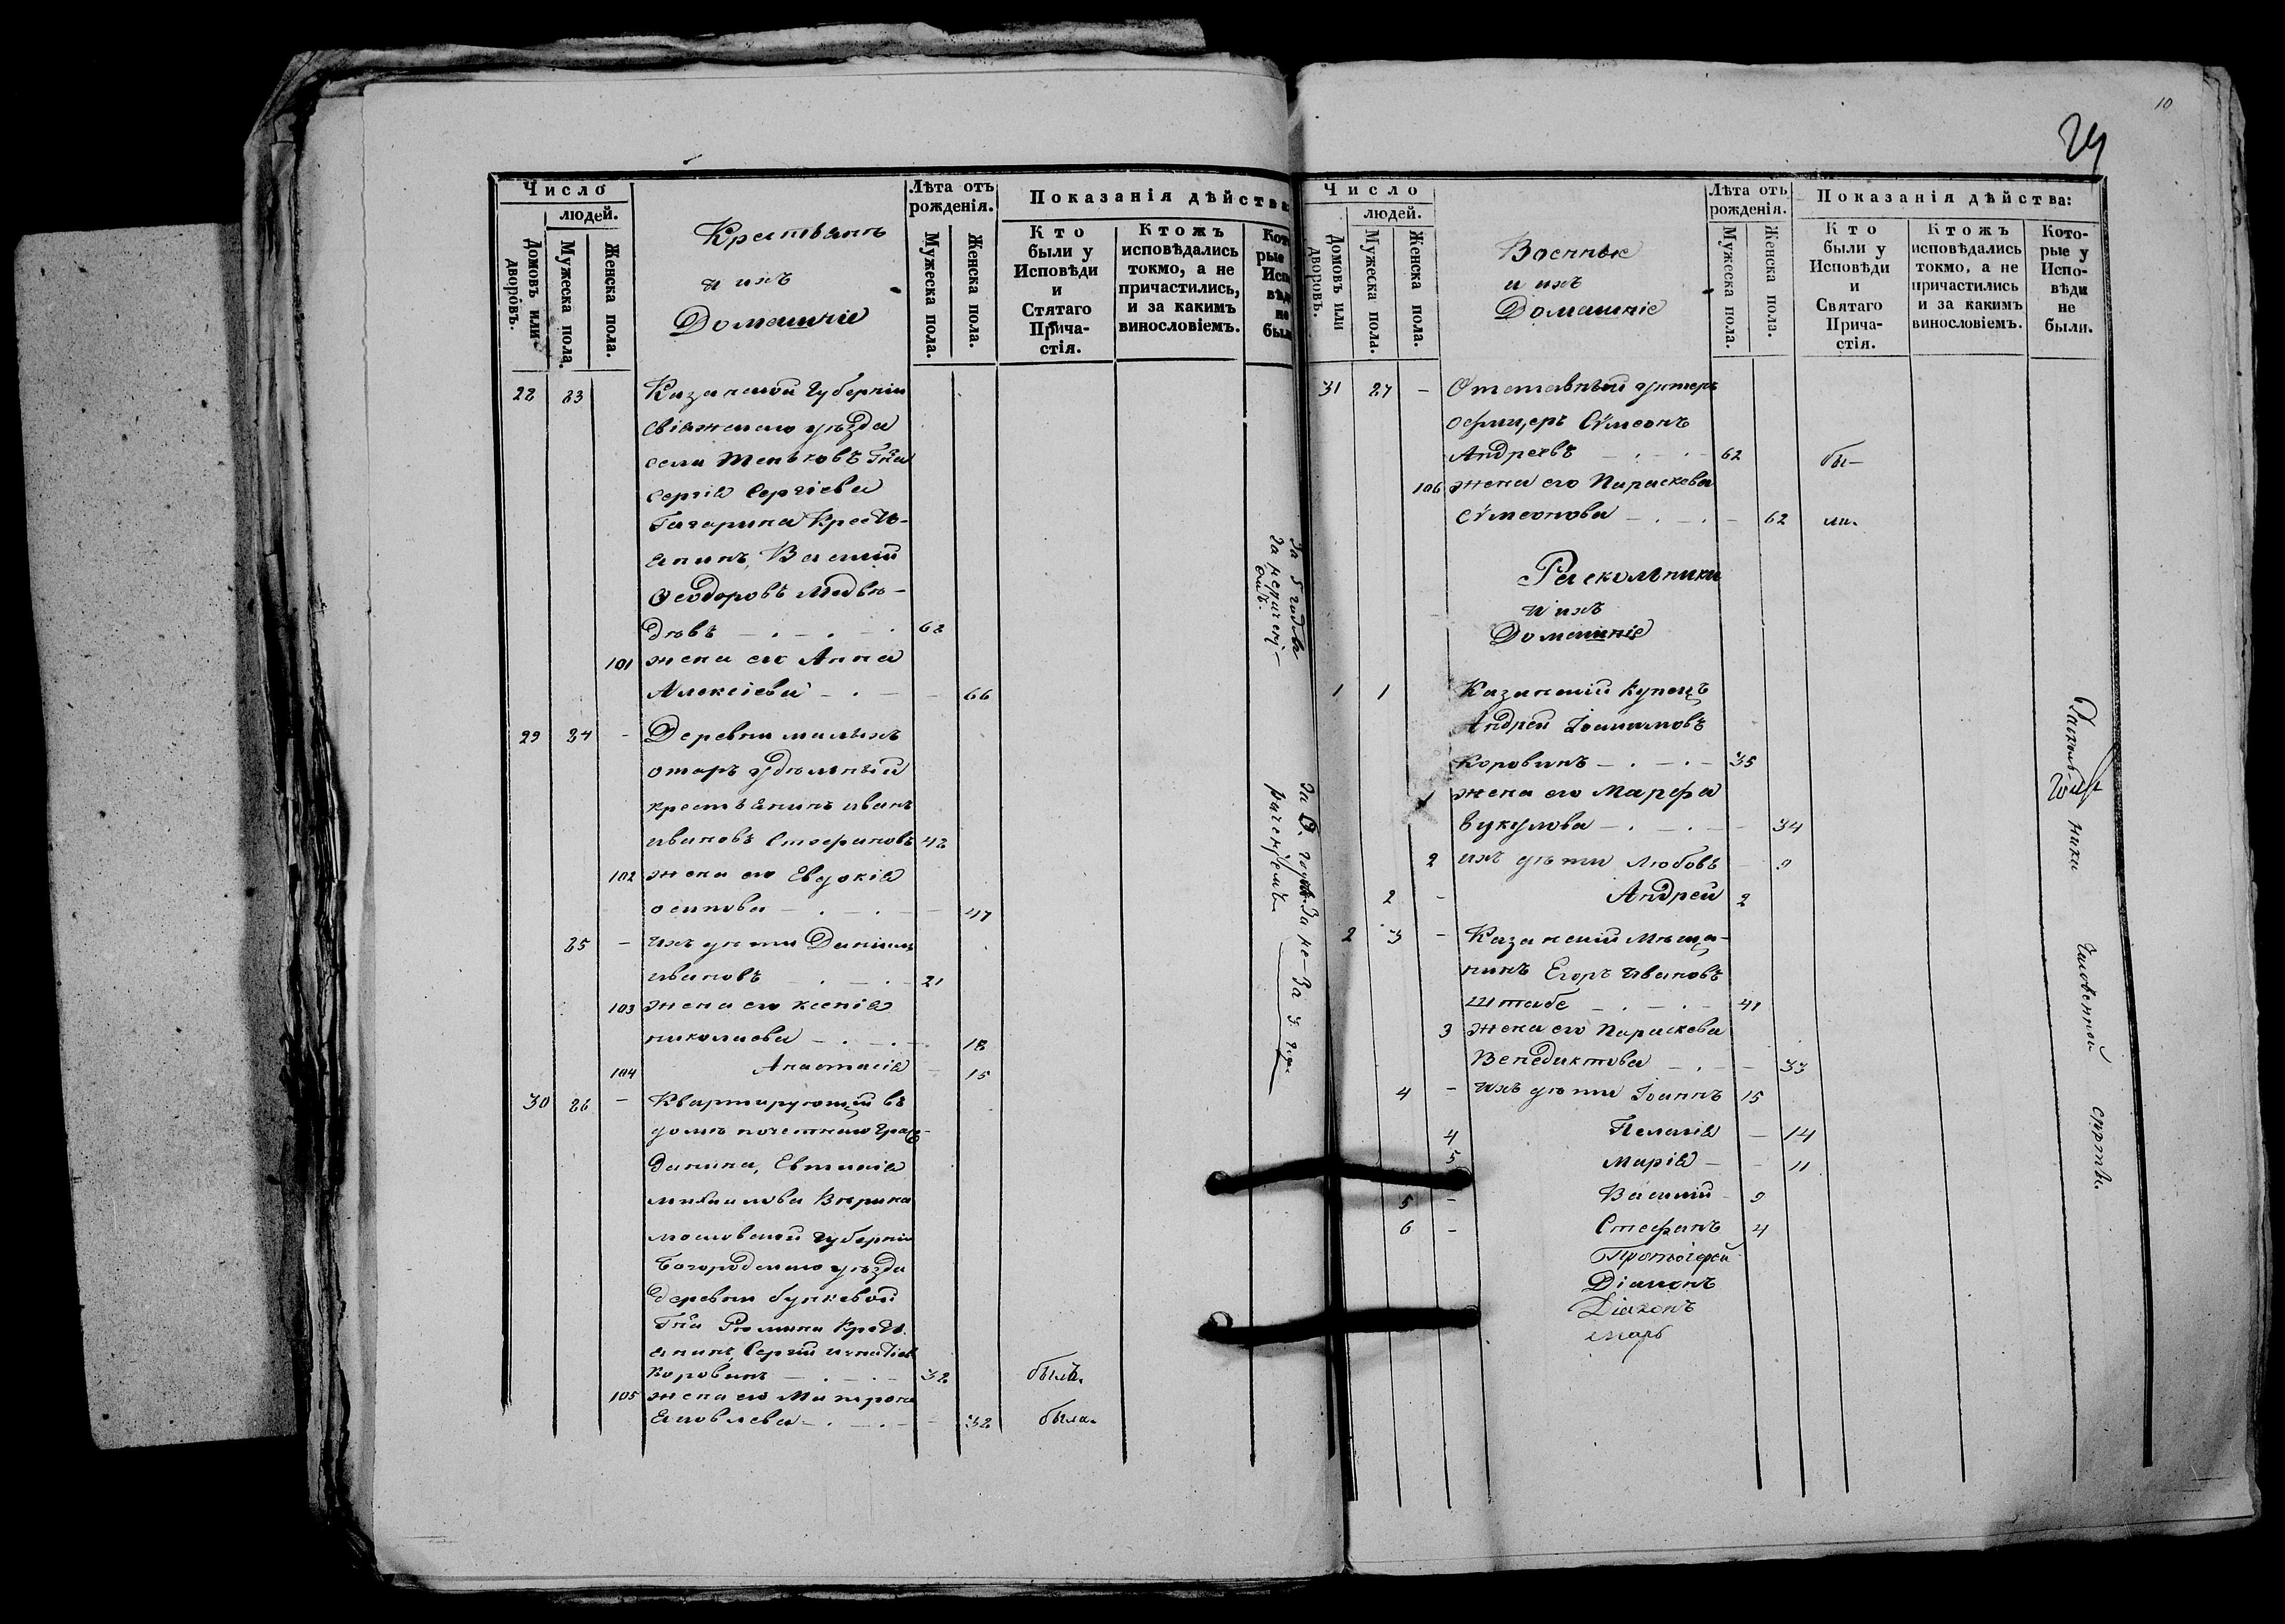 10
29
Число
людей.
Домовъ или дворовъ.
Мужеска пола.
Женска пола.
Крестьянъ
и ихъ
Домашніе
Лѣта отъ рожденія.
Мужеска пола.
Женска пола.
Показанія дѣйства:
Кто были у Исповѣди и Стятаго Причастія.
Ктожъ исповѣдались токмо, а не причастились, и за какимъ винословіемъ.
28 83 Казанской Губерніи
Свіяжскаго уѣзда
села Теньковъ Гна
Сергія Сергіева
Гагарина Кресть-
янинъ Василій
Ѳеодоровъ Медвѣ-
девъ 68
101 жена его Анна
Алексіева 66
29 84 - Деревни малыхъ
отаръ удѣльный
крестьянинъ Иванъ
Ивановъ Стефановъ 48
102 жена его Евдокія
осипова 47
85 - ихъ дѣти Даніилъ
Ивановъ 21
103 жена его Ксенія
николаева 18
104 Анастасія 15
30 86 - Квартирующій въ
домѣ почетнаго граж-
данина, Евтихія
михаилова
московской Губерніи
Богородскаго уѣзда
деревни бунковой
Гна Рюмина Кресть-
янинъ, Сергій Игнатіевъ
Коровинъ 32 былъ.
105 жена его Матрона
Яковлева 32 была.
За 5 годовъ
За нераченіемъ
За нераченіемъ
За 3 года
Число
людей.
Домовъ или дворовъ.
Мужеска пола.
Женска пола.
Военные
и ихъ
Домашніе
Лѣта отъ рожденія.
Мужеска пола.
Женска пола.
Показанія дѣйства:
Кто были у Исповѣди и Святаго Причастія.
Ктожъ исповѣдались токмо, а не причастились и за какимъ винословіемъ.
Которые у Исповѣди не были.
31 87 - Отставный унтеръ
офицеръ Сѵмеонъ
Андреевъ 62 бы-
106 жена его Параскева
Сѵмеонова 62 ли.
Раскольники
и ихъ
Домашніе
1 1 Казанскій Купецъ
Андрей Іоакимовъ
Коровинъ 35
жена его Марфа
Вукулова 34
2 ихъ дѣти Любовь 9
2 - Андрей 2
2 3 - Казанскій мѣща-
нинъ Егоръ Ивановъ
Штабе 41
3 жена его Параскева
Венедиктова 33
4 - ихъ дѣти Іоаннъ 15
4 Пелагія 14
5 Марія 11
5 - Василій 9
6 - Стефанъ 4
Протоіерей
Діаконъ
Діаконъ